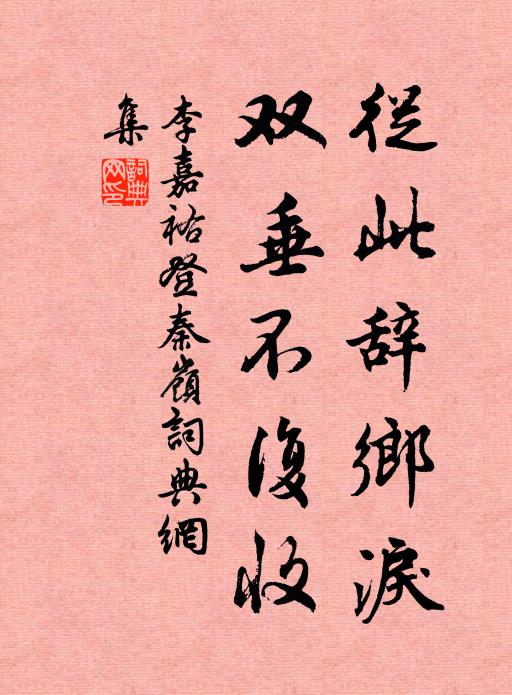 從此辞鄉淚
双垂不復收
李嘉祐登秦嶺詞典網
集
詞典網印